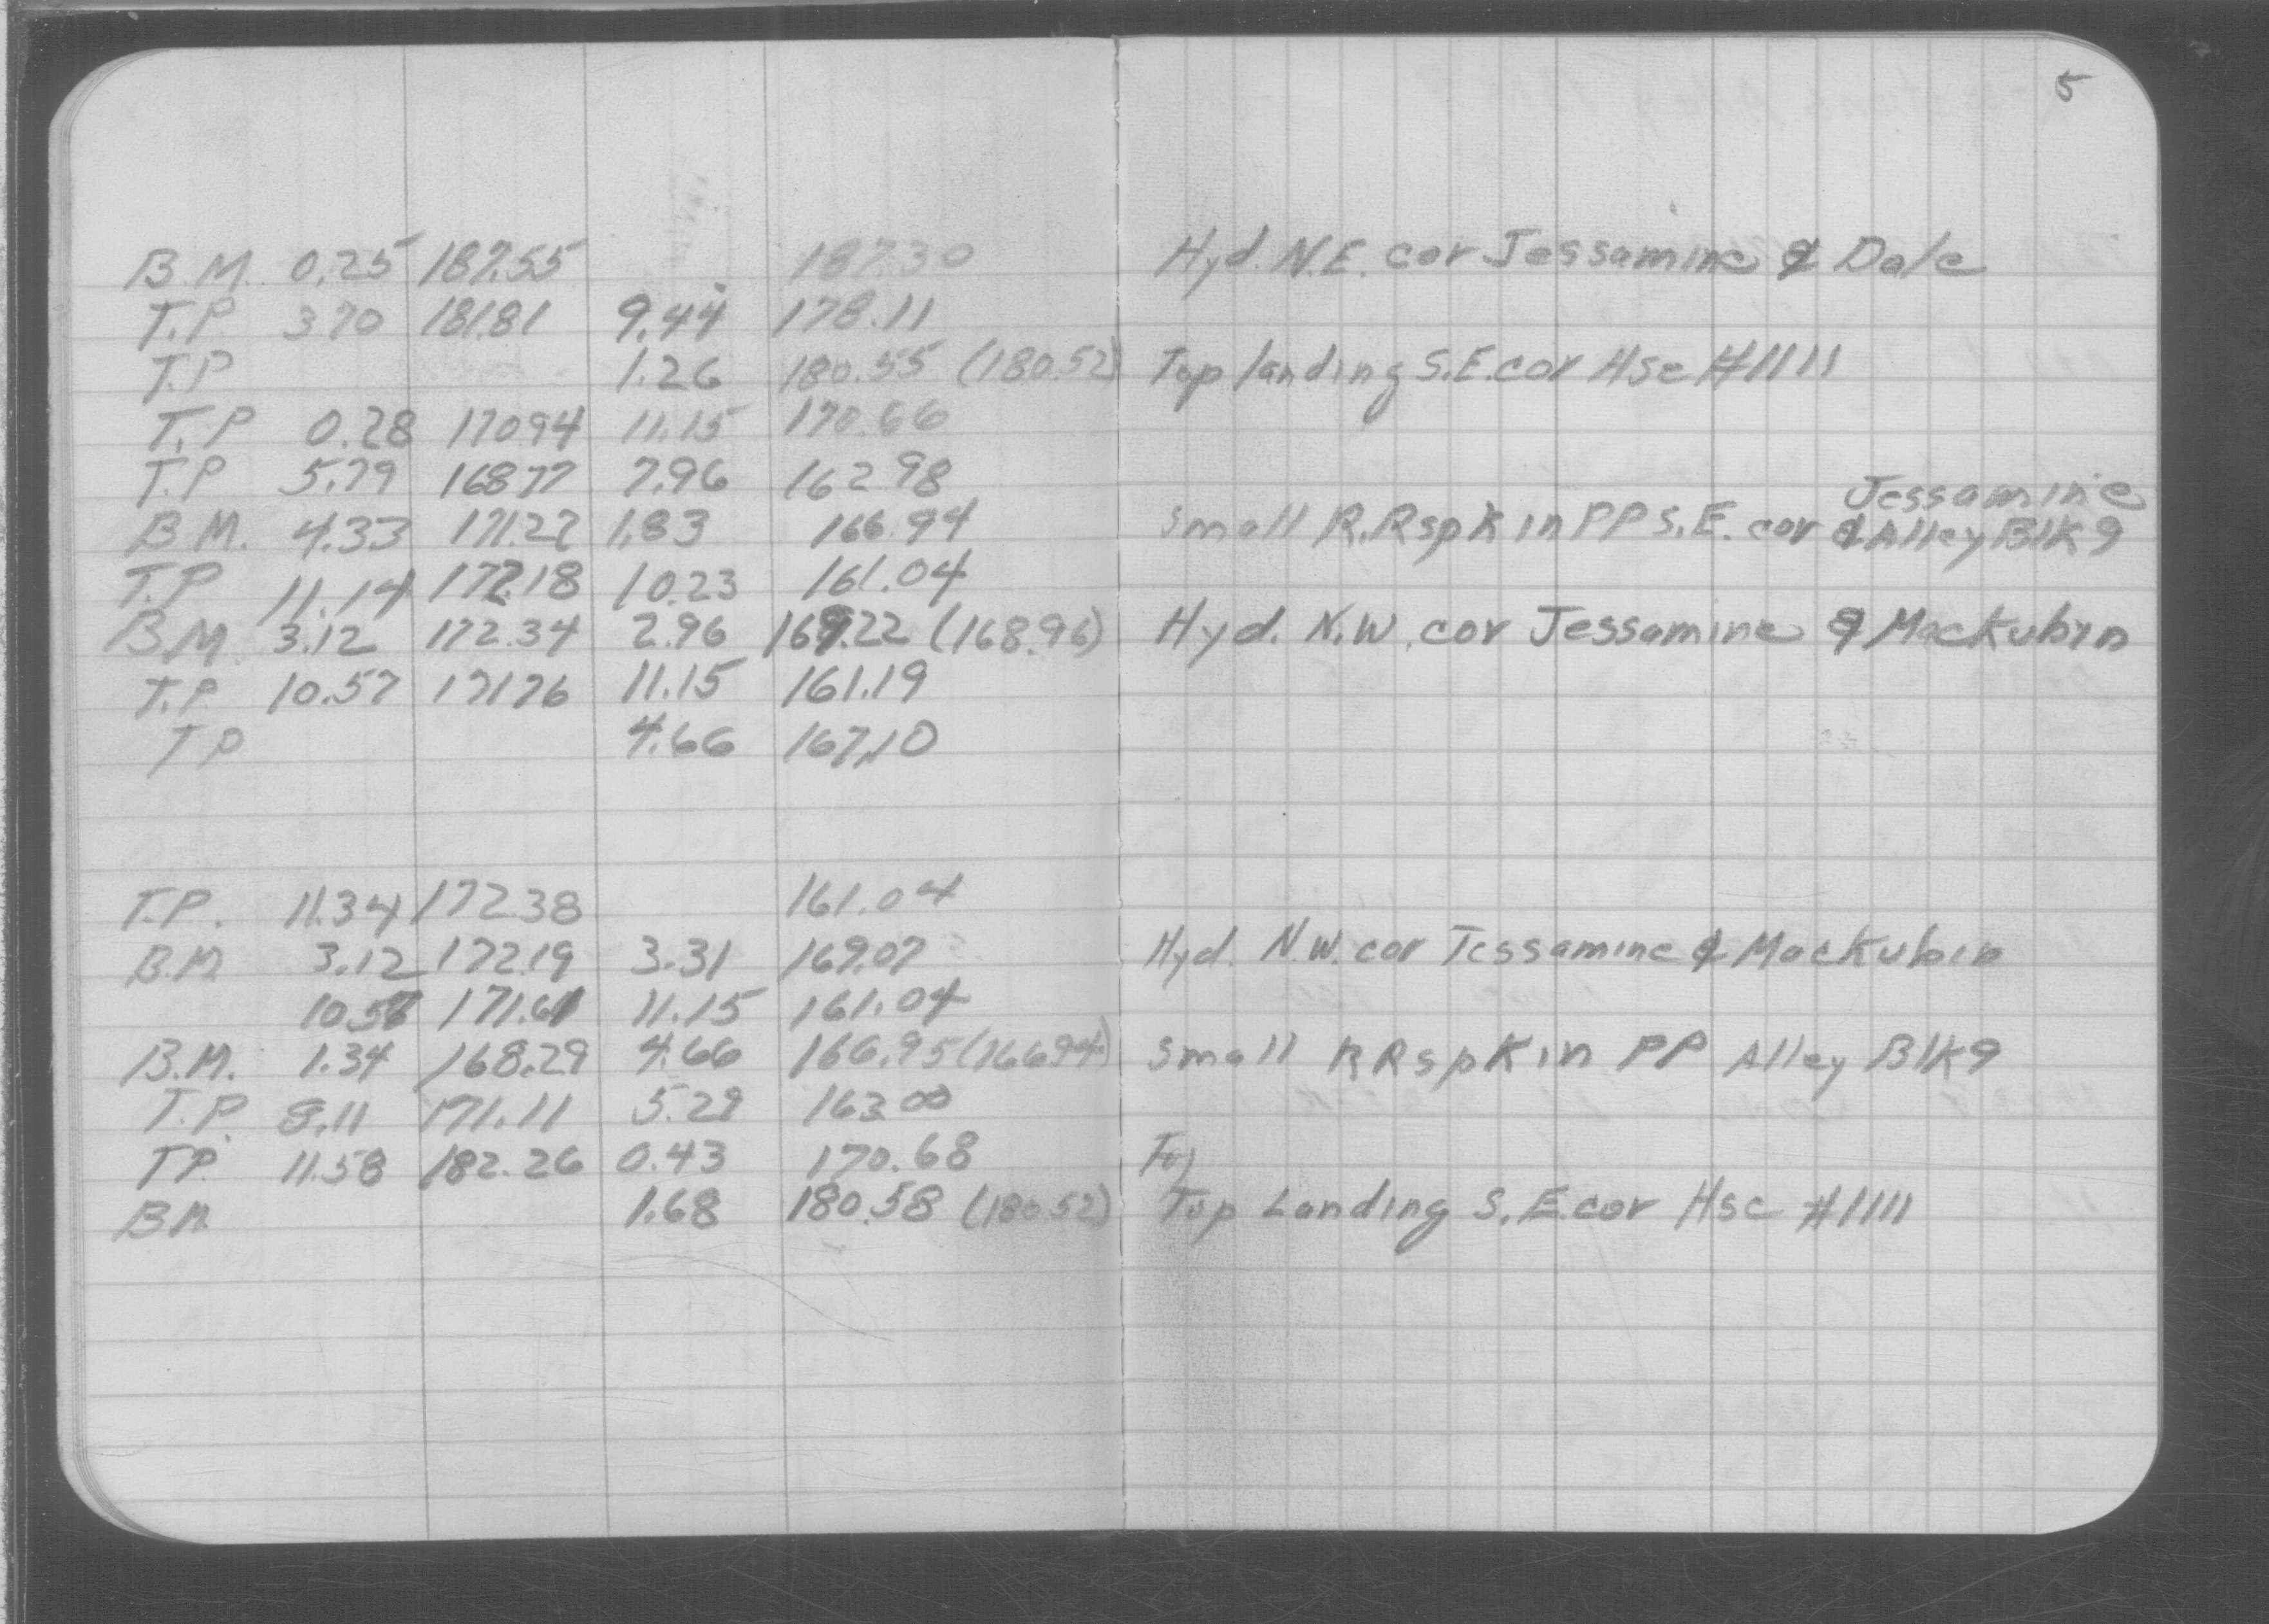 5
B.M. 0.25 187.55 187.30 Hyd. N.E. cor Jessamine & Dale
T.P. 3.70 181.81 9.44 178.11
T.P 1.26 180.55 (180.52) Top landing S.E. cor Hse #1111
T.P 0.28 170.94 11.15 170.66
T.P 5.79 168.77 7.96 162.98
Jessamine
B.M. 4.33 171.27 1.83 166.94 Small R.R spk in PP S.E. cor & Alley Blk 9
T.P 11.14 172.18 10.23 161.04
B.M. 3.12 172.34 2.96 169.22 (168.96) Hyd. N.W. cor Jessamine & Mackubin
T.P 10.57 171.76 11.15 161.19
T P 4.66 167.10
T.P. 11.34 172.38 161.04
B.M 3.12 172.19 3.31 169.07 Hyd. N.W. cor Jessamine & Mackubin
10.57 171.61 11.15 161.04
B.M. 1.34 168.29 4.66 166.95 (166.94) Small R R spk in PP Alley Blk 9
T.P. 8.11 171.11 5.29 163.00
T.P. 11.58 182.26 0.43 170.68 Top
B M 1.68 180.58 (180.52) Top Landing S.E. cor Hse #1111